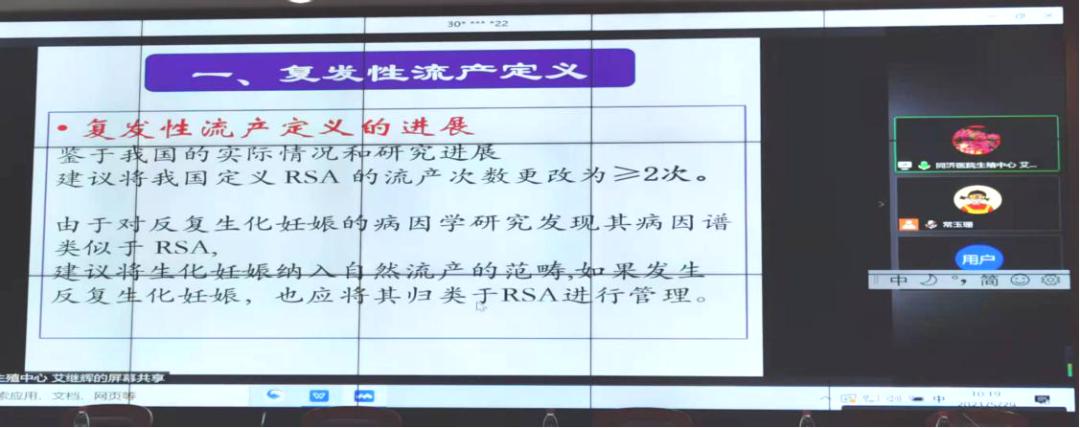 30* *** *22
一、复发性流产定义
• 复发性流产定义的进展
鉴于我国的实际情况和研究进展
建议将我国定义 RSA 的流产次数更改为≥2次。
由于对反复生化妊娠的病因学研究发现其病因谱
类似于 RSA,
建议将生化妊娠纳入自然流产的范畴,如果发生
反复生化妊娠，也应将其归类于RSA进行管理。
同济医院生殖中心 艾...
常玉珊
用户
中 简
生殖中心 艾继辉的屏幕共享
索应用、文档、网页等
中
10:19